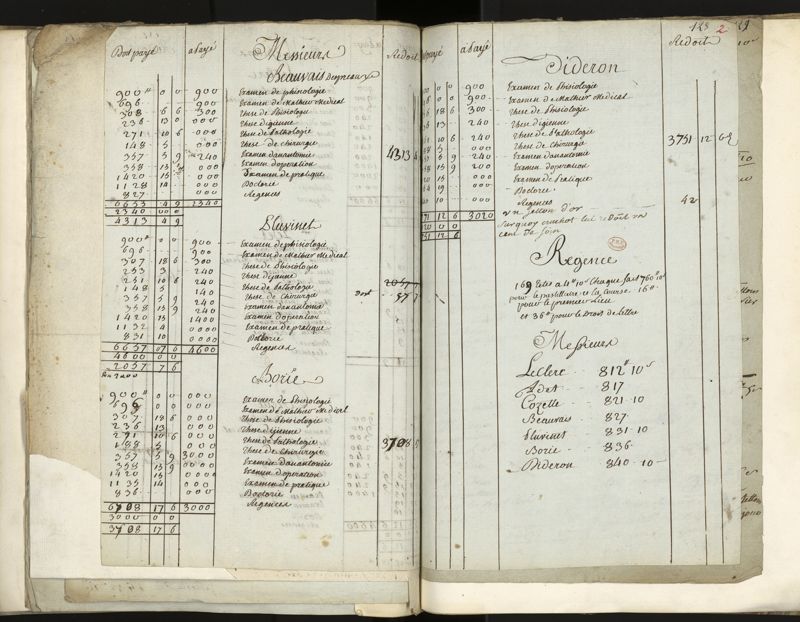 Doit payé a payé Messieurs Redoit
Beauvais Depreaux
900 ₶ 0 0 900 Examen de phisiologie
696 900 Examen de Mathier Medical
308 6 6 300 These de Phisiologie
236 13 0 000 These digienne
271 10 6 000 These de Pathologie
148 5 000 These de chirurgie
357 5 9 240 Examen danantomie 4313 4
358 15 9 000 Examen doperation
1420 15 000 Examen de pratique
1128 14 000 Doctorie
827 000 Regences
6653 4 9 1340
2340 00 0
4313 4 9
Pluvinet
900 ₶ 0 0 900 Examen de phisiologie
696 900 Examen de Mathier Medical
307 18 6 300 These de Phisiologie
253 3 240 These digienne
251 10 6 240 These de Pathologie 2057 7
148 5 140 These de Chirurgie doit 57 7
357 5 9 240 Examen danantomie
358 15 9 240 Examen doperation
1420 15 1400 Examen de pratique
1132 4 0000 Doctorie
831 10 0000 Regences
6657 07 6 4600
4600 0 0
2057 7 6
Borie
900 ₶ 0 0 000 Examen de Phisiologie
696 0 0 000 Examen de Mathier Medical
307 18 6 000 These de Phisiologie
236 13 000 These digienne
271 10 6 000 These de Pathologie 3708
188 5 000 These de Chirurgie
357 5 9 3000 Examen danantomie
358 15 9 0000 Examen doperation
1420 15 000 Examen de pratique
1135 14 000 Doctorie
836 000 Regences
6708 17 6 3000
3000 0 0
3708 17 6
payé a payé Dideron Redoit
00 0 0 900 Examen de Phisiologie
0 0 900 Examen de Mathier Medical
18 6 300 These de Phisiologie
13 240 These digienne
10 6 240 These de Pathologie
5 000 These de Chirurgie 3751 12 6
5 9 240 Examen danantomie
15 9 200 Examen doperation
15 000 Examen de Pratique
19 000 Doctorie
40 10 000 Regences
71 12 6 3020 un Jetton d'or 42
20 0 0
51 12 6
Regence
169 Jettes a 4₶ 10ˢ Chaque fait 760₶ 10ˢ
pour le premier Lieu
et 36₶ pour le Droit de Lettre
Messieurs
Leclerc 812₶ 10ˢ
817
Cozette 821 10
Beauvais 827
pluvinet 831 10
Borie 836
Dideron 840 10